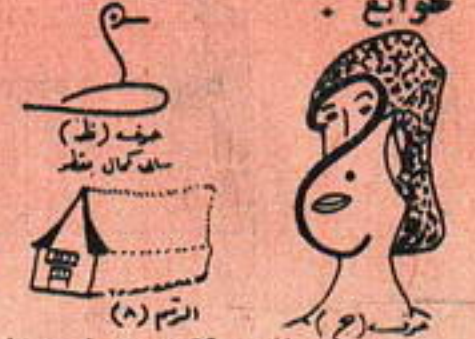 طوابع .
حرف (ظ)
سامي كمال بقطر
الرقم (٨)
حرف (ح)